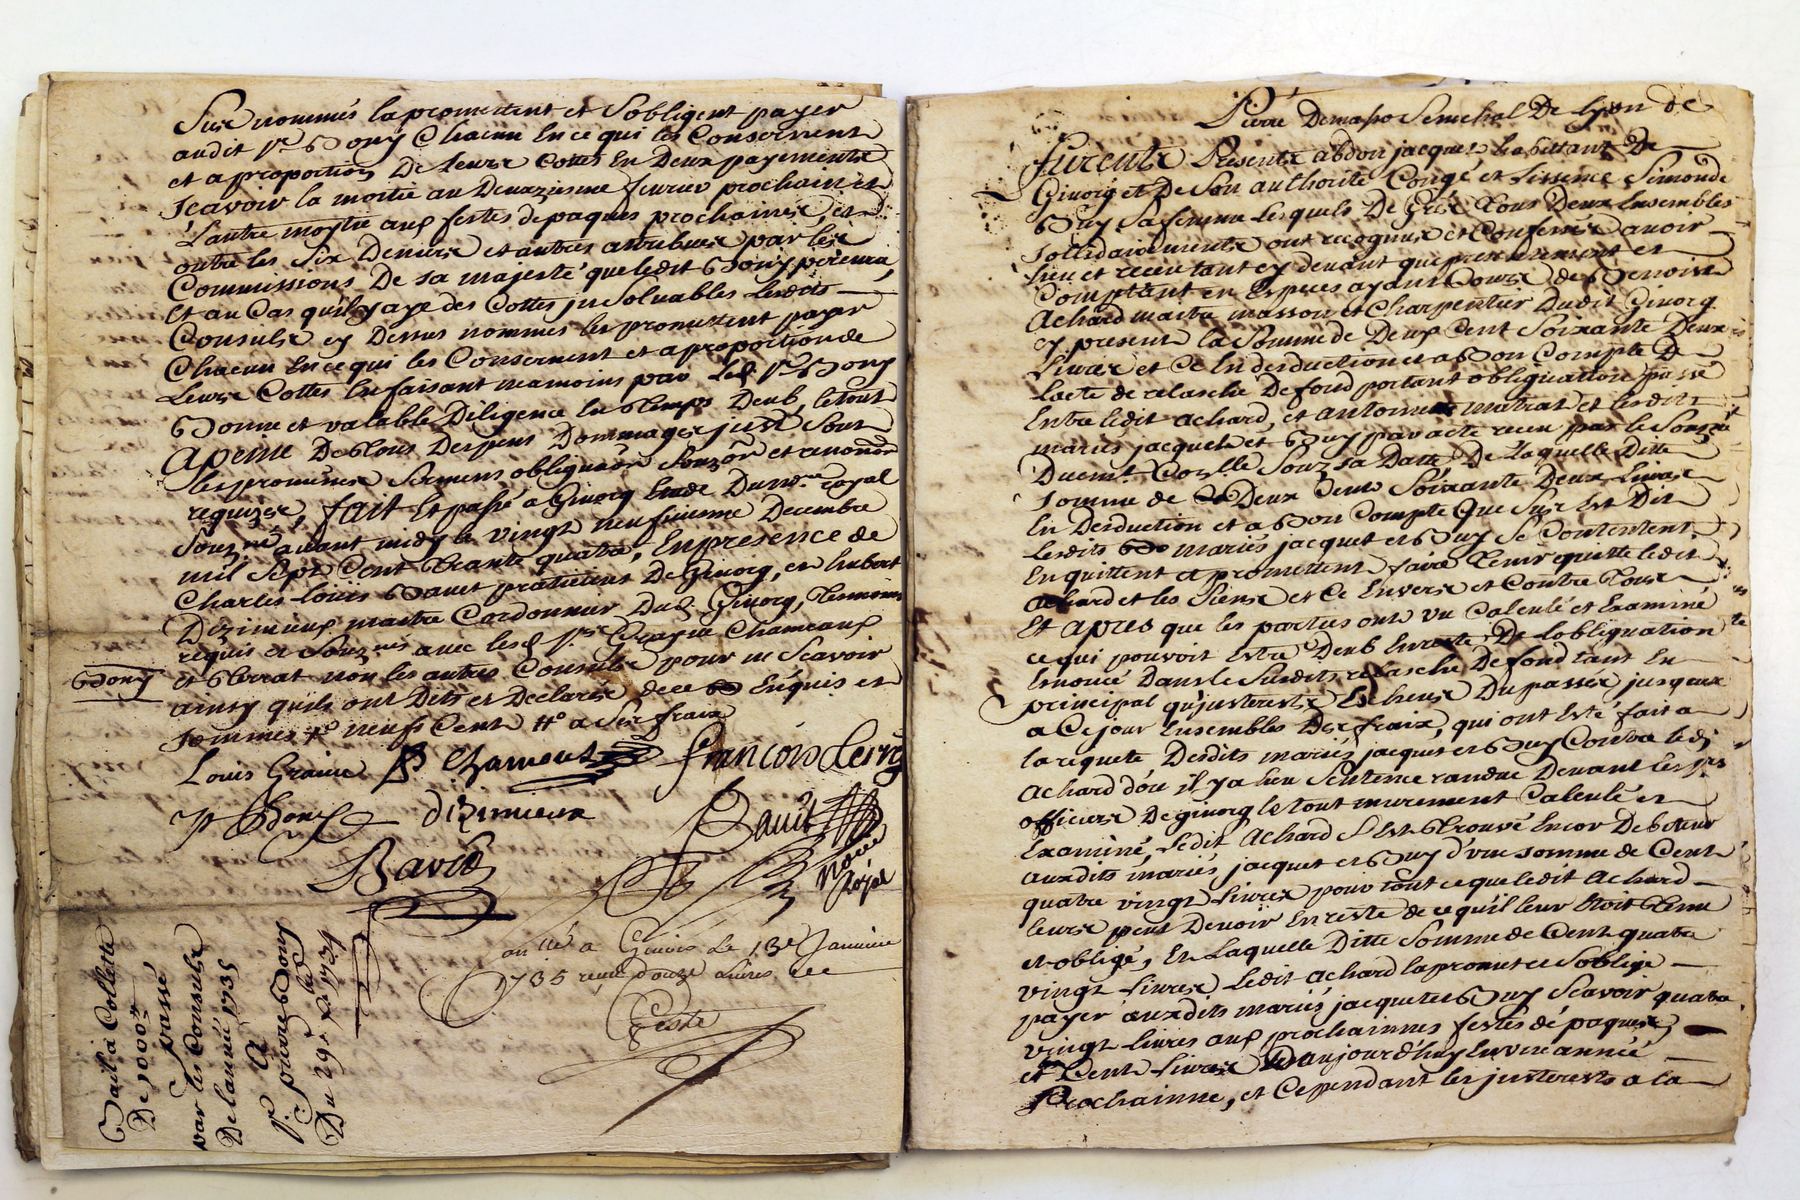 Sus nommés la promettent et s'obligent payer
audit Sr Bony Chacun En ce qui les Consernent
et a proportion De leurs Cottes En Deux payements
scavoir la moitié au Deuxziesme feuvrier prochain et
L'autre moytié aux festes de paques prochaines, et
outre les Six Deniers et autres attribues par les
Commissions De sa majesté que ledit Bony percevra,
Et au Cas quil y aye des Cottes jnsoluables Lesdits
Consuls cy Dessus nommés les promettent payer
Chacun En ce qui les Consernent et a proportion de
Leurs Cottes En faisant neamoins par Led Sr Bony
Bonne et valable Diligence En Temps Deub, le tout
A peine De Tous Despens Dommages
les promesses Sermens obligaons et
requizes, fait Et passé a Givorg Etude Du royal
Souzné avant midy le vingt neufvieme Decembre
mil Sept Cent Trante quatre, En presence de
Charles Louis Bavet praticient De Givorg, et hubert
Dezimieux maitre Cordonnier Dud Givorg, Tesmoins
requis et Souznés avec lesd Srs
et non les autres Consuls pour ne Scavoir
Bony
ainsy quils ont Dits et Declarés de ce Enquis et
sommés neufs Cent a Ses fraix
Louis Graine Chamout françois
P Bony dizimieux Bavit
David
Royal
a Givors Le 13e Janvier
1735 reçu douze Livres
Geste
Bail a Collette
De 1000
passé
par les Consuls
De lannée 1735
A
Sr pierre Bony
Du 29e xbre 1734
Pierre Senechal De Lyon de
furent Presents abdon jacquet habittant De
Givorg et De Son authorité Congé et Simonde
Buy Sa femme Lesquels De Gré Tous Deux Ensembles
sollidairements ont recognus et Confessés avoir
heu et receu tant cy devant que presentement et
Comptant en Especes ayant Cours de Benoist
Achard maitre masson et Charpentier Dudit Givorg
cy present la Somme de Deux Cent Soixante Deux
Livres et ce En desduction et a Bon Compte De
Lacte de relasche De fond portant obliguation passé
Entre ledit Achard, et antoine matrat et lesdits
mariés jacquet et Buy par acte receu par le Souzné
Souz sa Datte De Laquelle Ditte
Somme de Deux Cent Soixante Deux Livres
En Desduction et a Bon Compte Que Sus Est Dit
Lesdits mariés jacquet et Buy Se Contentent
En quittent et promettent faire Tenir quitte ledit
Achard et les Siens et Ce Envers et Contre Tous
Et apres que les parties ont vu Calculé et Examiné
ce qui pouvoit Estre Deub En reste De Lobliguation
Enoncé Dans le Susdit relasche De fond tant En
principal qu'justerests Eschus Du passé jusques
a Ce jour Ensembles Des fraix, qui ont Esté fait a
la requete Desdits mariés jacquet et Buy Contre ledit
Achard d'ou il y a heu Sentence randue Devant les
officiers De givorg le tout murement Calculé et
Examiné, Ledit Achard S'Est Trouvé Encor Debiteur
auxdits mariés jacquet et Buy d'une somme de Cent
quatre vingt Livres pour tout ce que ledit Achard
leurs peut Devoir En reste de ce qu'il leur Etoit Tenu
et obligé, Et Laquelle Ditte Somme de Cent quatre
vingt Livres Ledit Achard la promet et s'oblige
payer auxdits mariés jacquet et Buy Scavoir quatre
vingt Livres aux prochainnes festes de paques,
et Cent Livres D'aujourd'huy En une année
Prochainne, et Cependant les justerests a la